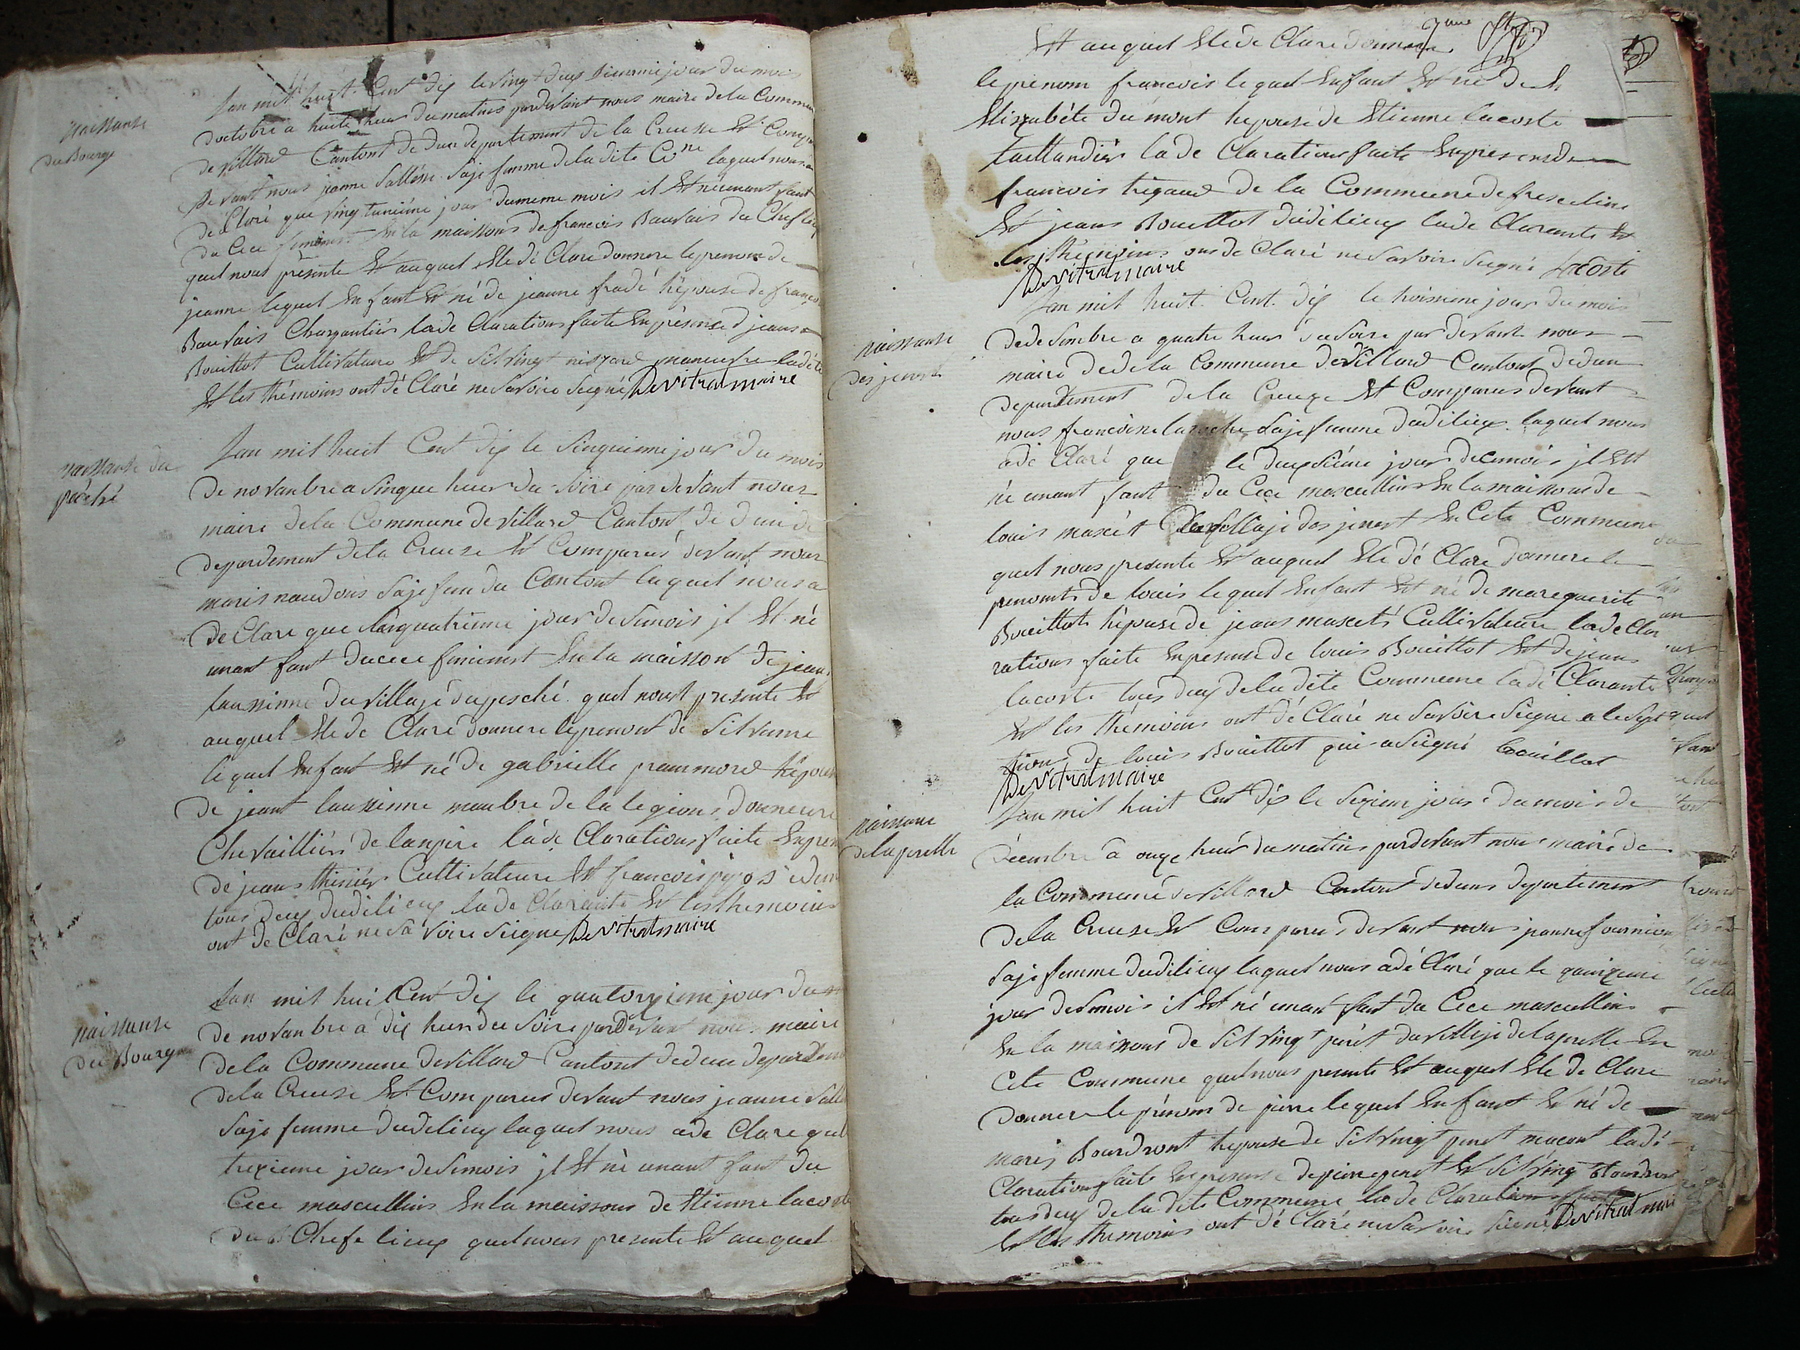 naissance
du Bourg
Jan mil huit Cent dix le vingt deux siemme jour du mois
doctobre a huite heur du matins pardevant nous maire de la Commun
de villard Cantont de dun departement de la Creuse Et Comp
devant nous janne Sallèse Saje famme de la dite Co.ne laquel nous a
dé Claré que vingtunième jour du meme mois il Et né unant fant
du Cece feminent En la maissons de francois Bauvais du Chef lieu
quel nous présente Et auquel Ele dé Clare donnere le prenom de
jeanne lequel Enfant Et né de jeanne fradé hépouse de françois
Bauvais Charpantiér lade Clarations faite En présence d jeans
Bouillot Cultivateure Et de Silving manoeuvre ladé
Et les thémoins ont dé Claré ne Savoire Siegné Devitral maire
naissance du
péché
Jan mil huit Cent dix le Sinquieme jour du mois
de novanbre a Sinque heur du Soire par devant nous
maire de la Commune de villard Cantont de dun de
departement de la Creuse Et Comparue devant nous
marie naudons Saje fam du Cantont laquel nous a
de Clare que las quatrieme jour de Semois jl Et né
unant fant du cece feminent En la maisont de jean
laussinne du villaje du peché quel nous presente Et
auquel Ele de Claré donnere le prenont de Silvinne
lequel Enfant Et né de gabrielle prammord hépouse
de jeant laussinne manbre de la legions donneure
Chevailliér de lanpire lade Clarations faite En pre
de jeans thixiér Cultivateure Et francois
tous deux dudi lieux lade Clarante Et les themoins
ont de Claré ne Sa voire Siegné Devitral maire
naissance
du Bourg
Jan mil hui Cent dix le quatorzieme jour du
de novanbre a dix heur du Soire par devant nous maire
de la Commune de villard Cantont de dun departement
de la Creuse Et Comparue devant nous jeanne Salle
Saje famme dudi lieux laquel nous a de Clare quel
trezieme jour de Semois jl Et né unant fant du
Cece mascullins En la maissons de Etienne lacoste
du Chefe lieux quel nous presente Et auquel
Et auquel Ele de Clare donnere
le prenom francois lequel Enfant Et né de
Elizabéte du mont hepouse de Etienne lacoste
taillandiér lade Clarations faite En presence de
francois trigaud de la Commune de fresseline
Et jeans Bouillot dudi lieux lade Clarante Et
les thémoins ons de Claré ne Savoire Siegné Lacoste
Devitral maire
naissance
des jenest
Jan mil huit Cent dix le troisieme jour du mois
de desembre a quatre heur du Soire par devant nous
maire de de la Commune de villard Cantont de dun
departement de la Creuze Et Comparue devant
nous francoise laroche Saje famme dudi lieux laquel nous
a dé Claré que le deuxsiéme jour de cemois jl Et
né unant fant du Cece mascullins En la maissons de
louis mascét du villaje des jenest En Cete Commune
quel nous presente Et auquel Ele dé Clare donnere le
prenomt de louis lequel Enfant Et né de mareguerite
Bouillot hépouse de jeans mascét Cultivateure lade Cla
rations faite En presence de louis Bouillot Et de jeans
lacoste tous deux de la dite Commune ladé Clarante
Et les thémoins ont dé Claré ne Savoire Siegné a le Sept
tions de louis Bouillot qui a Siegné Bouillot
Devitral maire
naissance
de la prelle
Jan mil huit Cent dix le Sezieme jour du mois de
décembre a onze heur du matins pardevant nous maire de
la Commune de villard Cantont de dun departement
de la Creuse Et Comparue devant nous jeanne fournion
Saje famme dudi lieux laquel nous a dé Claré que le quinzieme
jour de Semois il Et né unant fant du Cece mascullins
En la maisons de Silving perét du villaje de la prelle En
Cete Commune quel nous presente Et auquel Ele de Clare
donnere le prénom de pierre lequel Enfant Et né de
marie Bourdront hepouse de Silving peret macont ladé
Clarations faite En presence de pierre peret Et Silving Bourdron
tous deux de la dite Commune lade Claration
Et les themoins ont dé Claré ne Savoire Siegné Devitral maire